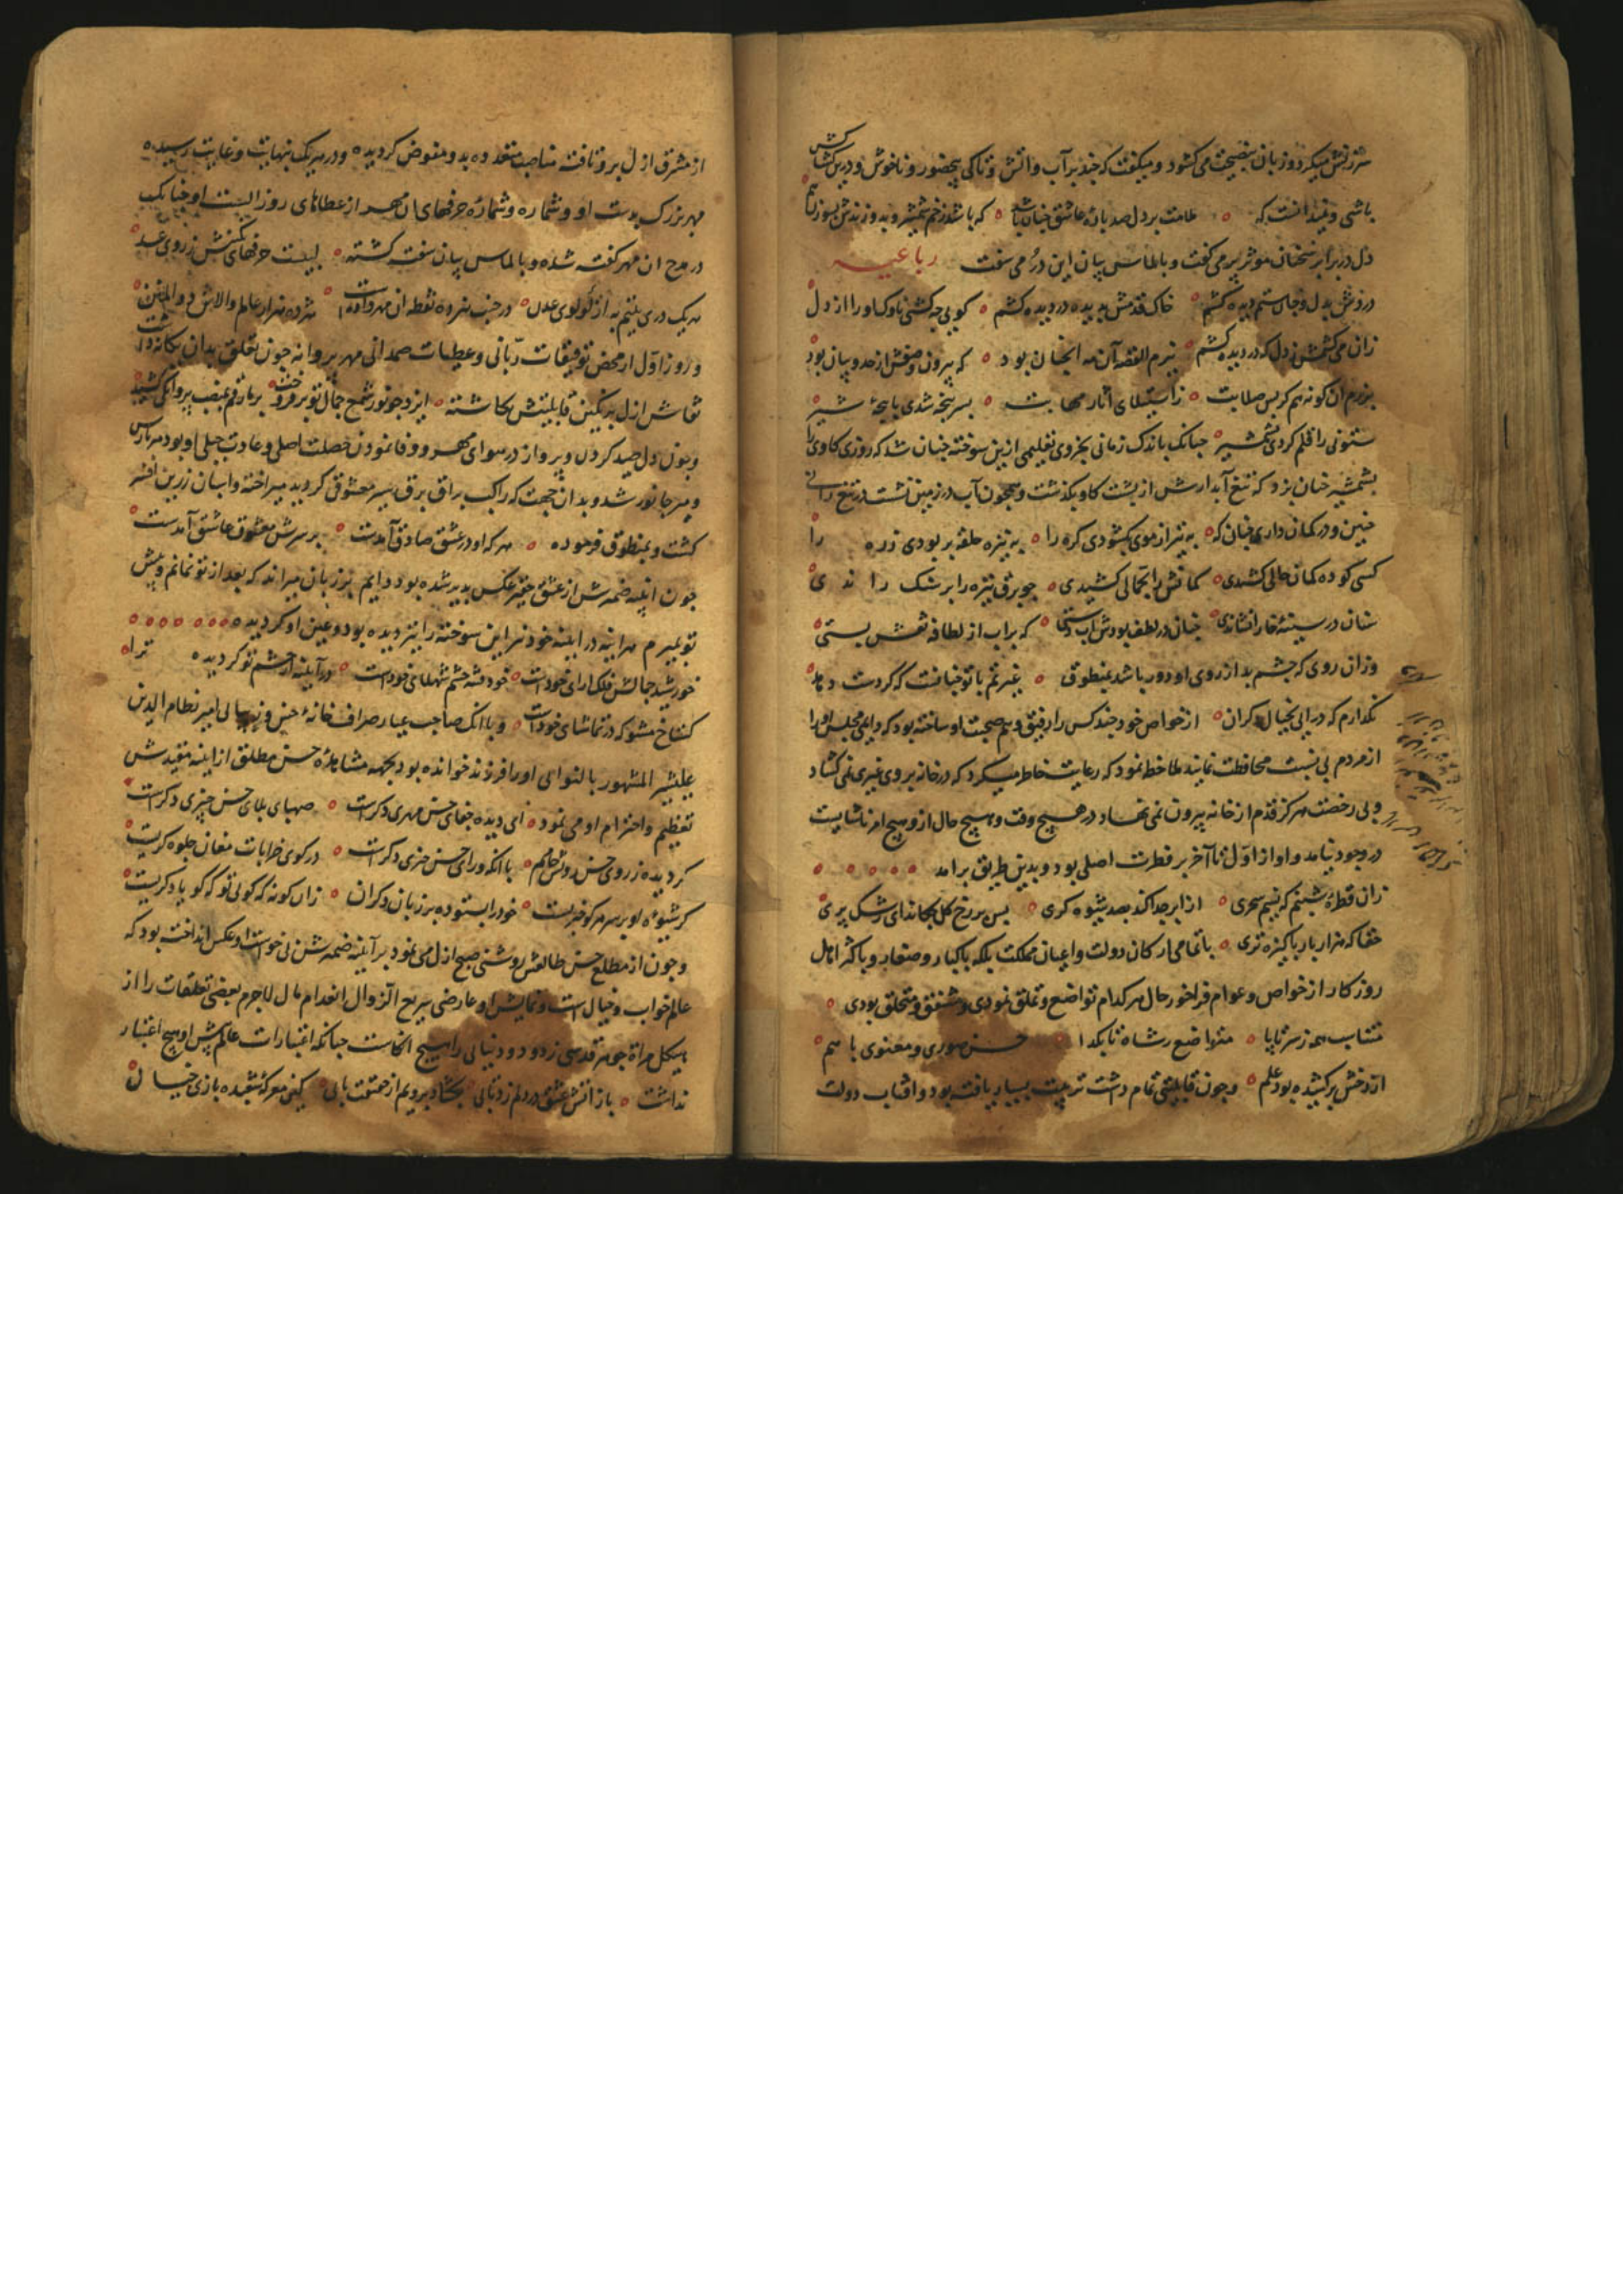 سرزنش میکرد و زبان بنصیحت می کشود و میکفت که چند بر آب و آتش و تا کی بیحضور و ناخوش و در کشاکش
باشی و نمیدانست که ملامت بر دل صد پارهٔ عاشق چنان باشد که باشد زخم شمشیر و بدوزندش بسوزن هم
دل در برابر سخنان موثر پر می کفت و بالماس بیان این در می سفت رباعیه
دردش بدل و جای ستم دیده کشم خاک قدمش بدیده در دیده کشم کویی چه کشی ناوک او را از دل
زان می کشمش ز دل که در دیده کشم بزم القصه آن مه انچنان بود که بیرون وصفش از حد و بیان بود
برزم ان کونه هم کز بس صلابت ز استیلای آثار مهابت بسر پنجه شدی با پنجهٔ شیر
ستونی را قلم کردی بشمشیر چنانک باندک زمانی بی تعلیمی ازین سوخته چنان شد که روزی کاوی را
بشمشیر چنان بزد که تیغ آبدارش از پشت کاو بکذشت و همچون آب در زمین نشست در تیغ رانی
چنین و در کمان داری چنان که به تیر از موی بکشودی کره را به نیزه حلقه بربودی زره را
کسی کو ده کمان حالی کشیدی کمانش را بحالی کشیدی چو برق نیزه را بر سنک راندی
سنان در سینهٔ خارا نشاندی چنان در لطف بودش آب دستی که بر آب از لطافت نقش بستی
وزان روی که چشم بد از روی او دور باشد بمنطوق غیرتم با تو چنانست که کر دست دهد
نکذارم که درایی بخیال دکران از خواص خود چند کس را رفیق و هم صحبت او ساخته بود که دایم مجلس او را
از مردم بی نسبت محافظت نمایند ملاحظه نمود که رعایت خاطر میکرد که در خانه بر وی غیری نمی کشاد
و بی رخصت هرکز قدم از خانه بیرون نمی نهاد در هیچ وقت و هیچ حال ازو هیچ امر ناشایست
در وجود نیامد و او از اول تا آخر بر فطرت اصلی بود و بدین طریق برامد
زان قطرهٔ شبنم که نسیم سحری از ابر جدا کند بصد شیوه کری بس بر رخ کل چکاند ای رشک پری
حقا که هزار بار پاکیزه تری با تمامی ارکان دولت و اعیان مملکت بلکه با کبار و صغار و با اکثر اهل
روزکار از خواص و عوام فراخور حال هر کدام تواضع و تملق نمودی و مشفق و متخلق بودی
متناسب همه ز سر تا پا متواضع ز شاه تا بکدا حسن صوری و معنوی با هم
از رخش برکشیده بود علم و چون قابلیتی تمام داشت تربیت بسیار یافته بود و آفتاب دولت
از مشرق ازل برو تافت مناصب متعدده بدو مفوض کردیده و در هر یک بنهایت و غایت رسیده
مهر بزرک بدست او و شماره و شمارهٔ حرفهای ان مهر از عطاهای روز الست او چنانک
در مدح ان مهر کفته شده و بالماس بیان سفته کشته بیست حرفهای کنش ز روی عدد
هر یک دری یتیم به از لولوی عدن در جنب هژده نقطه ان مهر و هژده هزار عالم و الاش
و روز اول از محض توفیقات ربانی و عطیات صمدانی مهر پروانه چون تعلق بدان یکانه داشت
نقاش ازل بر نکین قابلیتش نکاشته ایزد چو نور شمع جمال تو برفروخت
و چون دل صید کردن و پرواز در هوای مهر و وفا نمودن خصلت اصلی و عادت جبلی او بود
و میر جانور شد و بدان جهت که راکب براق برق سیر معشوقی کردید میراخته و اسبان زرین
کشت و بمنطوق فرموده هر که او در عشق صادق آمدست بر سرش معشوق عاشق آمدست
چون آینهٔ ضمیرش از عشق حقیر عکس پذیر شده بود دایم بر زبان میراند که بعد از تو نمانم و پیش
تو بمیرم هر آینه در آینهٔ خود نیز این سوخته را نیز دیده بود و عین او کردیده
خورشید جمالش فلک آرای خودست خود فتنه چشم شهلای خودست در آینه از چشم تو کردیده ترا
کستاخ مشو که در تماشای خودست و با انک صاحب عیار صراف خانهٔ حسن و زیبایی امیر نظام الدین
علیشیر المشهور بالنوایی او را فرزند خوانده بود بجهه مشاهدهٔ حسن مطلق از آینه مقیدش
تعظیم و احترام او می نمود ای دیده جفای حسن مهری دکرست صهبای بلای حسن چیزی دکرست
کردیده ز روی حسن روشن با آنکه ورای حسن چیزی دکرست در کوی خرابات مغان جلوه کریست
کز شیوهٔ او بر سر هر کو خبریست خود را بستوده بر زبان دکران زان کونه که کویی تو که کویا دکریست
و چون از مطلع حسن طالعش روشنی صبح ازل می نمود بر آینه ضمیرش عکس انداخته بود که
عالم خواب و خیال است و نمایش او عارضی سریع الزوال انعدام مال لاجرم بعضی تعلقات را از
هیکل مرآة جوهر قدسی زدود و دنیا را هیچ انکاشت چنانکه اعتبارات عالم پیش او هیچ اعتبار
نداشت باز آتش عشق در دلم زد تابی بکشاد برویم از محنت بابی کیتی معرکهٔ شعبده بازی خیال